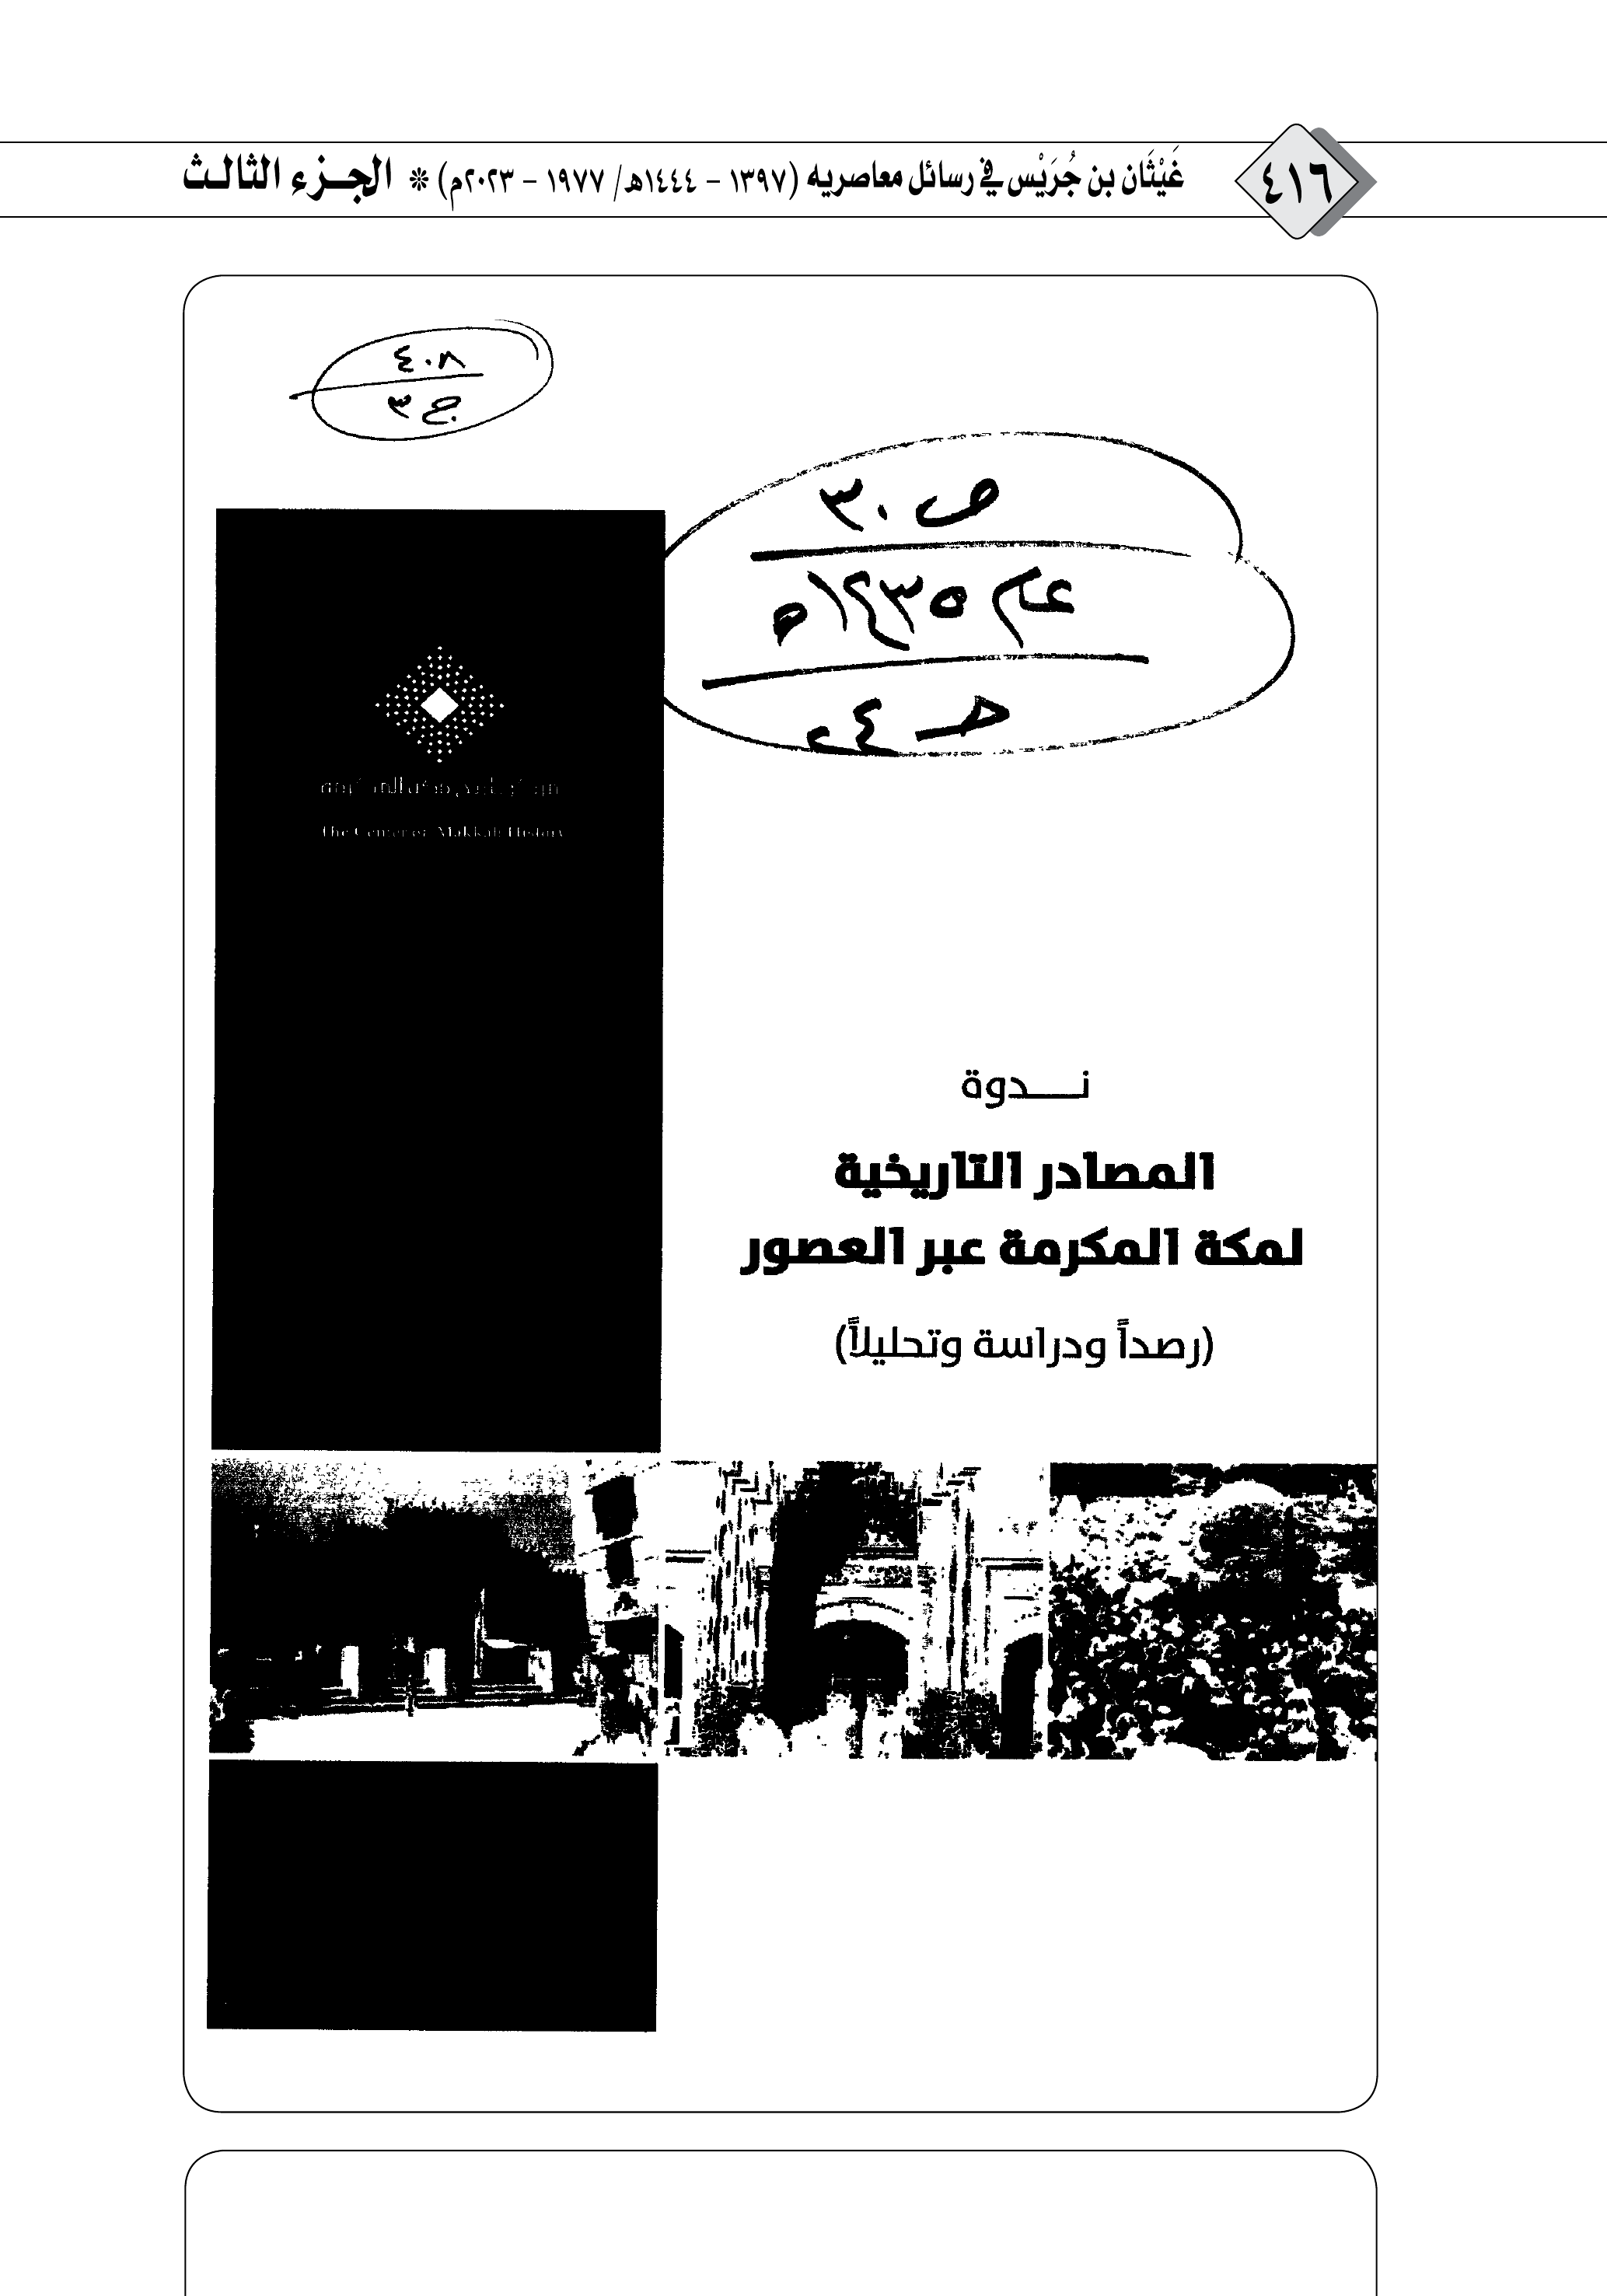 ٤١٦
غَيْثَان بن جُرَيْس في رسائل معاصريه (١٣٩٧ - ١٤٤٤هـ/ ١٩٧٧ - ٢٠٢٣م) * الجـزء الثالـث
٤٠٨
ج ٣
ص ٣٠
عام ١٤٣٥هـ
The Center of Makkah History
نـــــدوة
المصادر التاريخية
لمكة المكرمة عبر العصور
(رصداً ودراسة وتحليلاً)